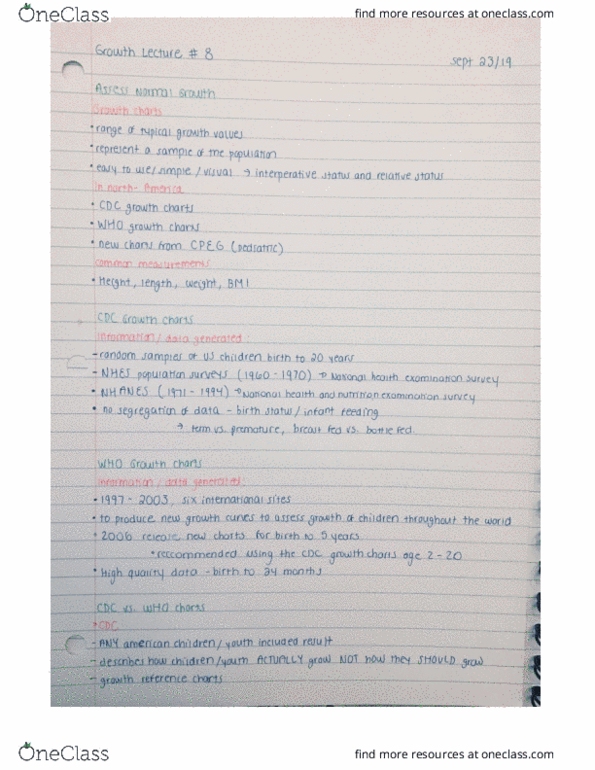 OneClass
find more resources at oneclass.com
Growth Lecture # 8
Sept 23/19
Assess Normal Growth
Growth charts
• range of typical growth values
• represent a sample of the population
• easy to use/simple/visual → interperative status and relative status
In north-America
• CDC growth charts
• WHO growth charts
• new charts from CPEG (pediatric)
common measurements
• Height, length, weight, BMI
CDC Growth Charts
Information/data generated:
- random samples of US children birth to 20 years
- NHES population surveys (1960-1970) → National health examination survey
• NHANES (1971-1994) → National health and nutrition examination survey
• no segregation of data - birth status/infant feeding
→ term vs. premature, breast fed vs. bottle fed
WHO Growth Charts
Information/data generated:
• 1997-2003, six international sites
• to produce new growth curves to assess growth of children throughout the world
• 2006 release new charts for birth to 5 years
* reccommended using the CDC growth charts age 2-20
• High quality data - birth to 24 months
CDC vs. WHO charts
* CDC
- ANY american children/youth included result
- describes how children/youth ACTUALLY grow NOT how they SHOULD grow
- growth reference charts
OneClass
find more resources at oneclass.com